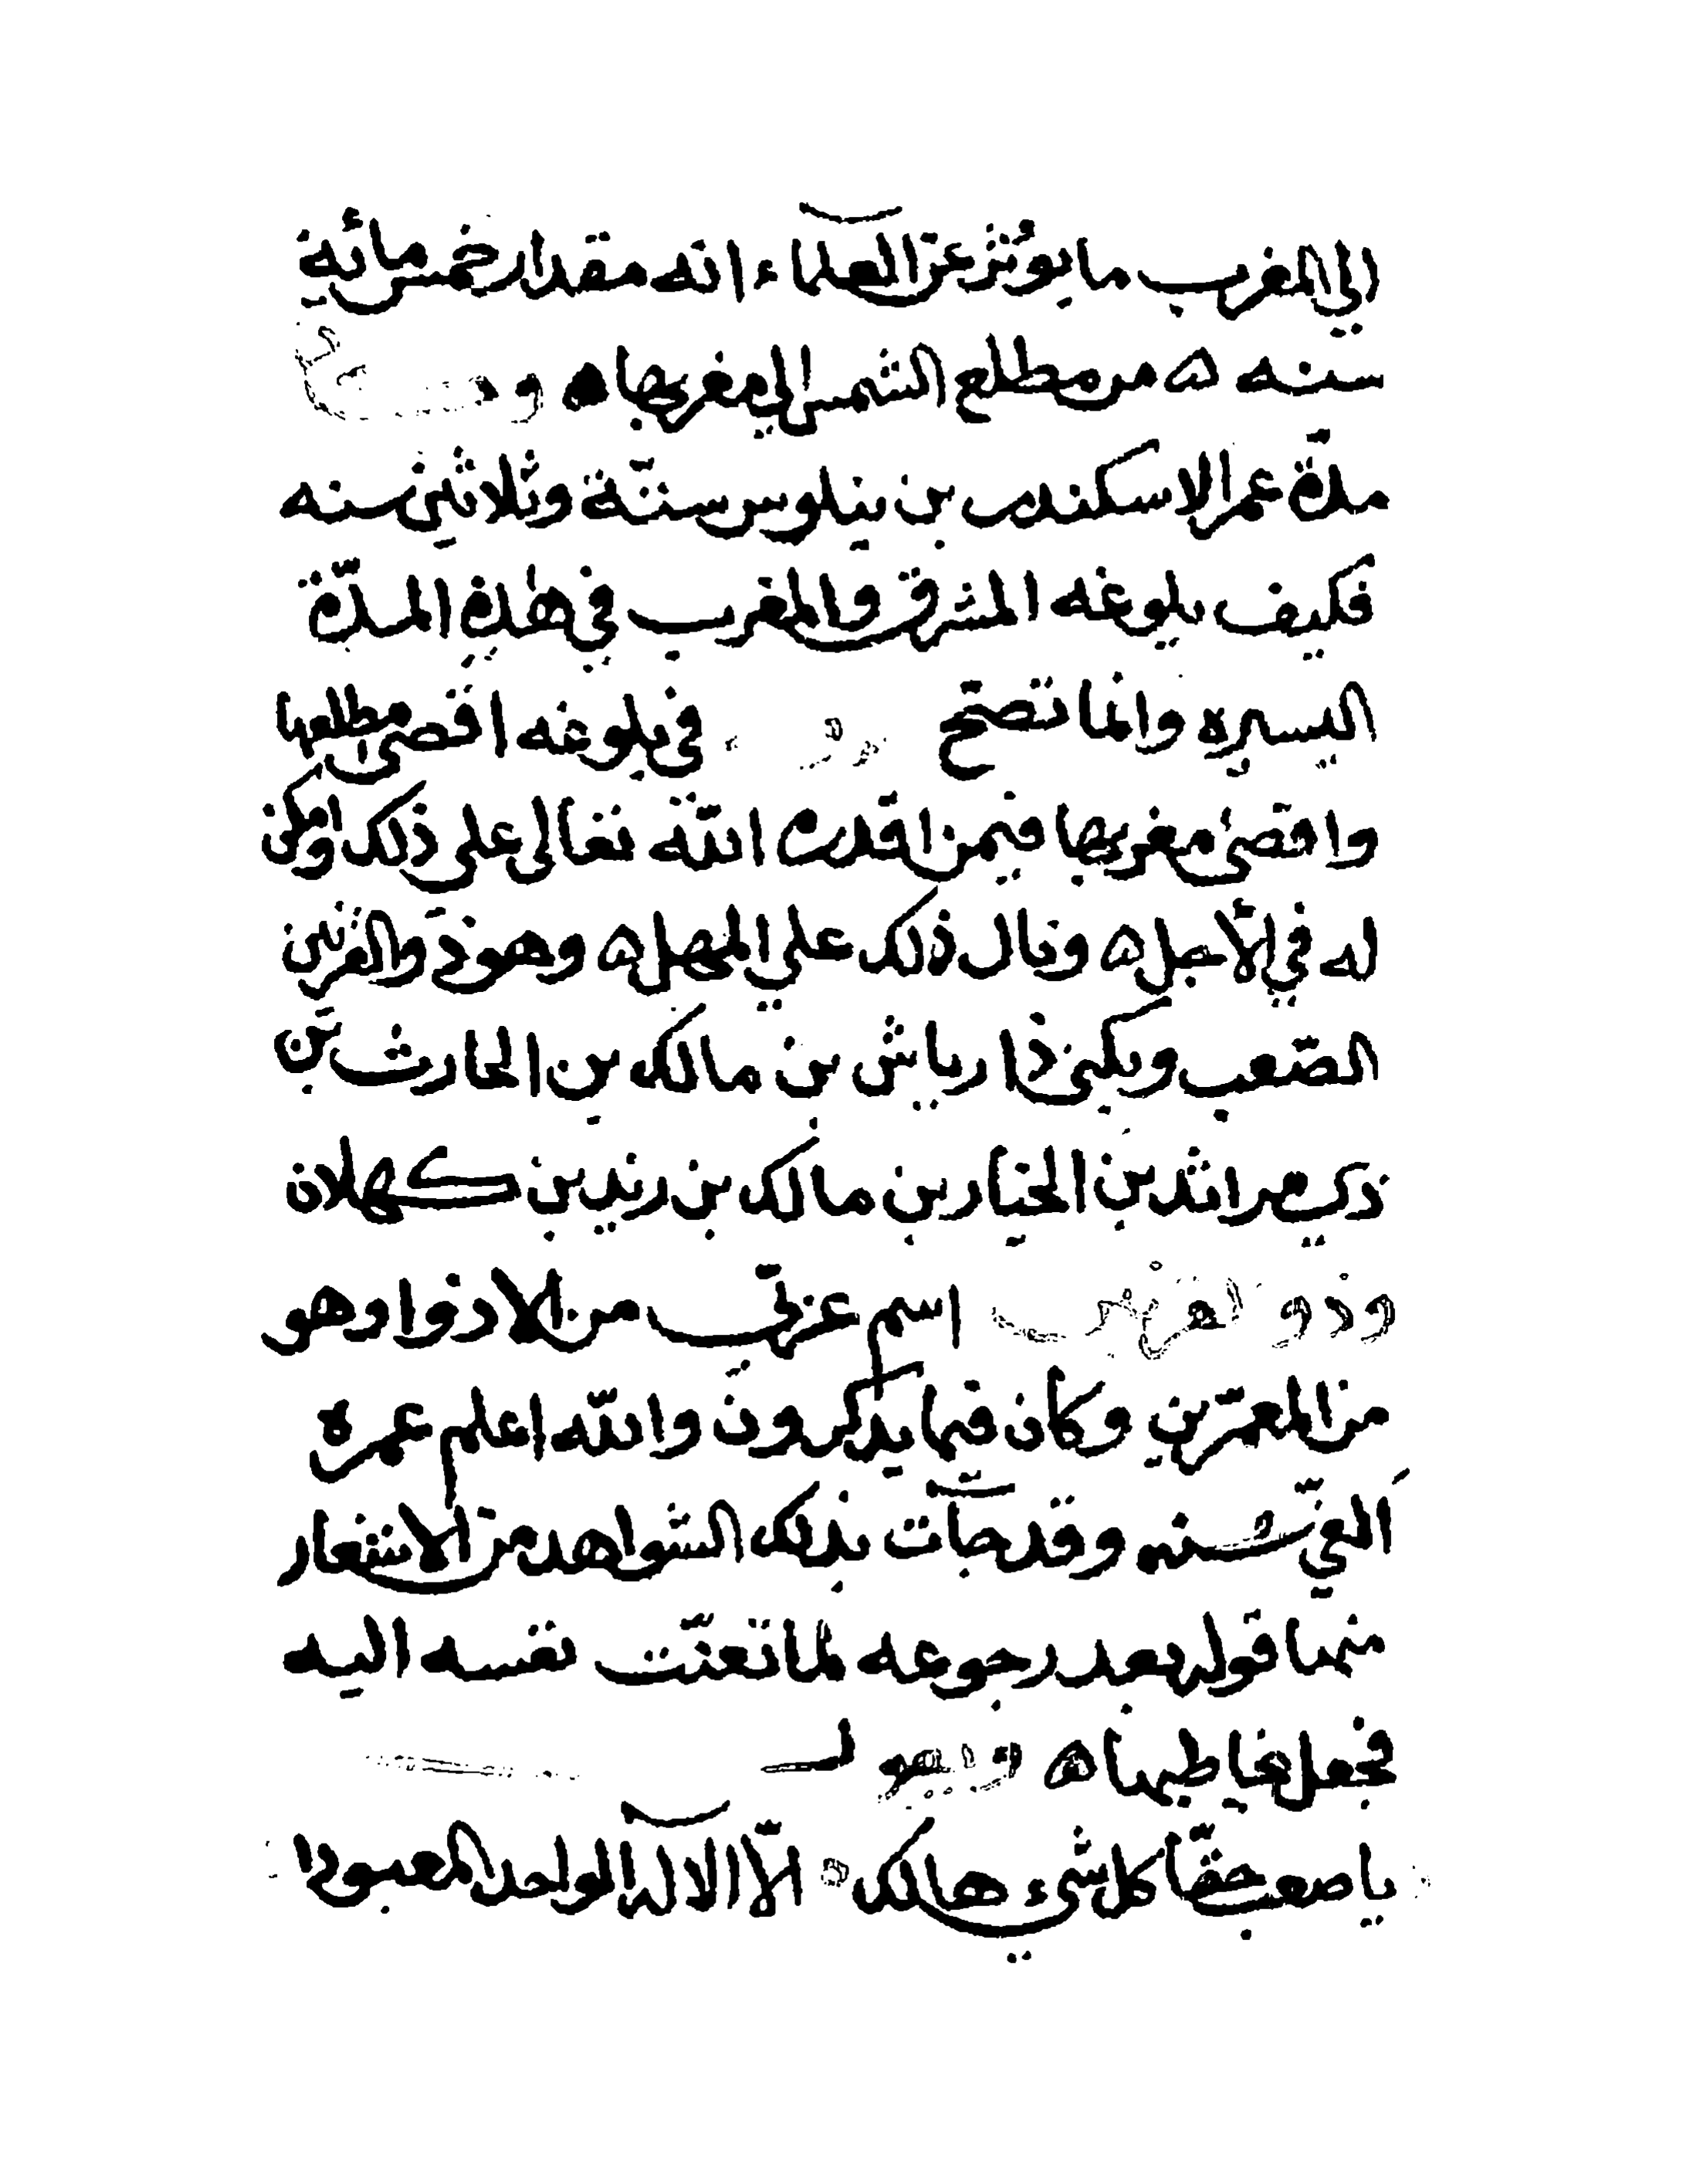 الي المغرب ما يوثر عن العلماء انه مقدار خمس مائة
سنه ه من مطلع الشمس الي مغربها ه
مدة عمر الاسكندر بن بيلوس ستة وثلاثين سنه
فكيف بلوغه المشرق والمغرب في هذه المدة
اليسيره وانما تصح في بلوغه اقصى مطلعها
واقصى مغربها فيمن اقدره الله تعالى على ذلك وامكن
له في الأجل ه ونال ذلك علي المهل ه وهو ذو القرنين
الصعب ويكنى ذا رياش بن مالك بن الحارث بن
ذي مراثد بن الخيار بن مالك بن زيد بن كهلان
وذو القرنين اسم عربي من الاذوا وهو
من المعمرين وكان فيما يذكرون والله اعلم عمره
الفي سنه وقد جآت بذلك الشواهد من الاشعار
منها قوله بعد رجوعه لما تعنت نفسه اليه
فجعل يخاطبها ه فيقول
يا صعب حقا كل شيء هالك الا الاله الواحد المعبودا